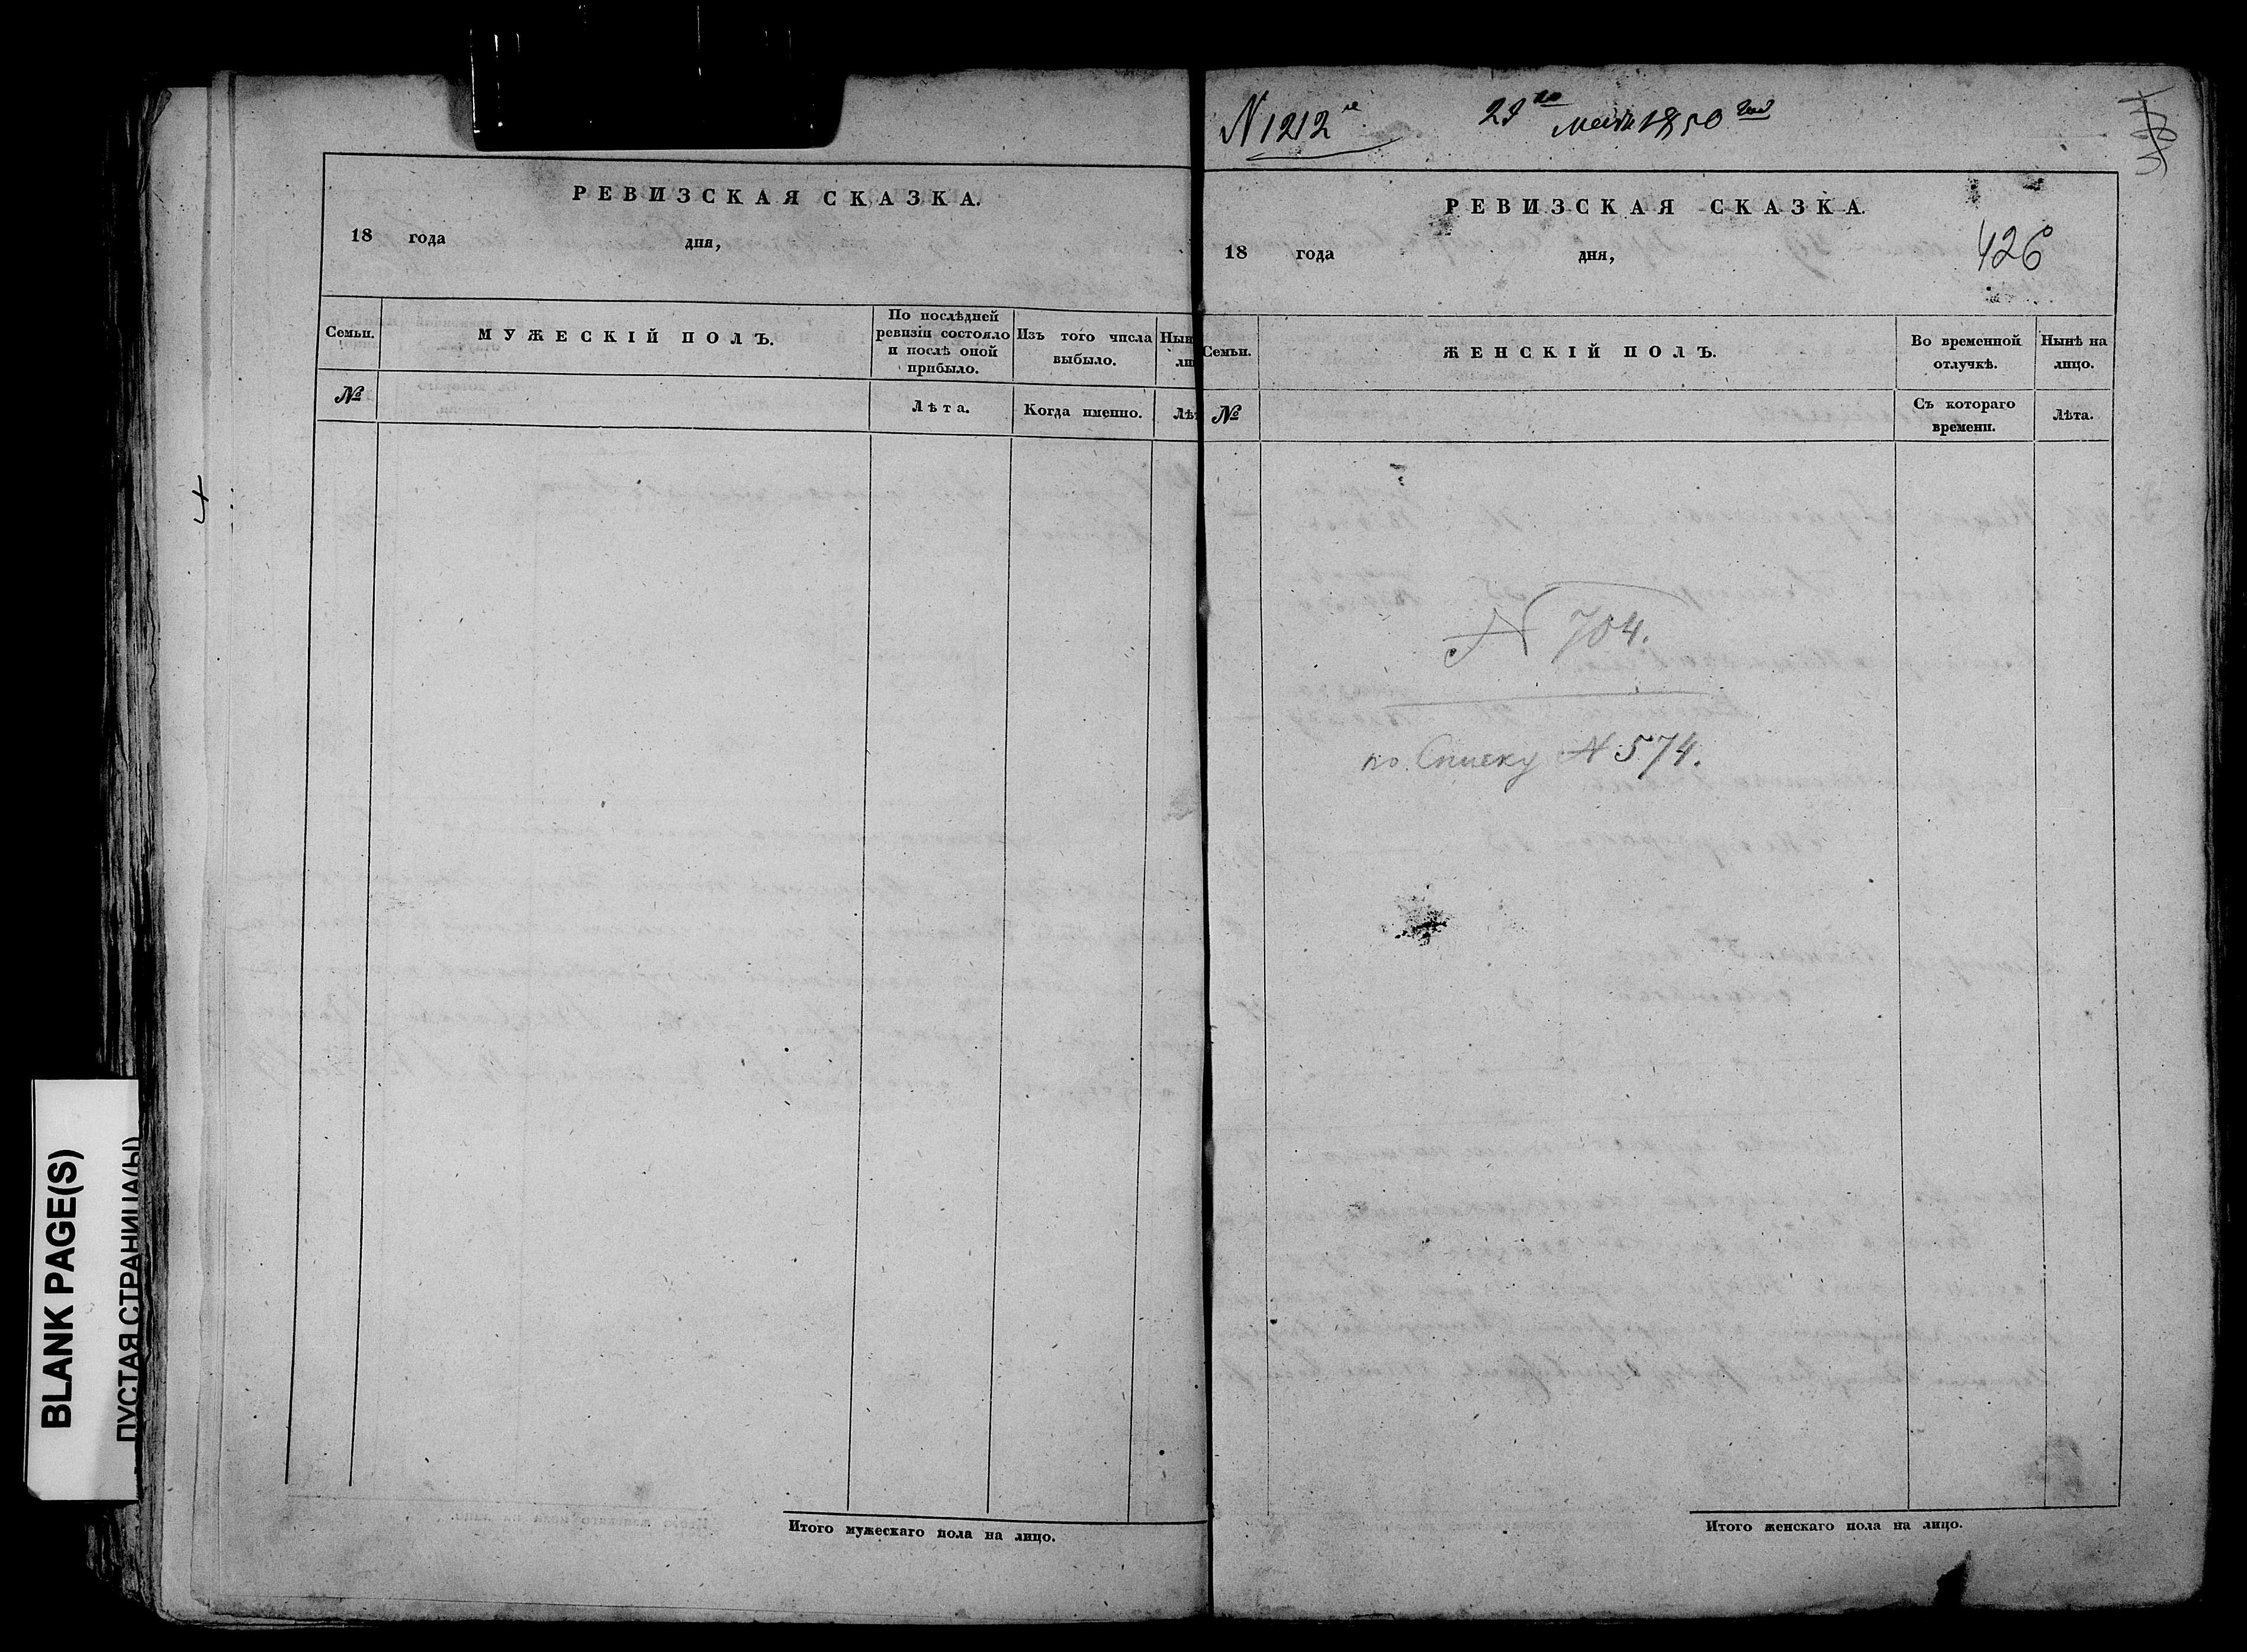 РЕВИЗСКАЯ СКАЗКА.
18 года дня,
Семьи.
МУЖЕСКІЙ ПОЛЪ.
По послѣдней
ревизіи состояло
и послѣ оной
прибыло.
Изъ того числа
выбыло.
Нын
ли
№
Лѣта.
Когда именно.
Лѣт
Итого мужескаго пола на лицо.
N 1212
1850
РЕВИЗСКАЯ СКАЗКА.
18 года дня,
426
Семьи.
ЖЕНСКІЙ ПОЛЪ.
Во временной
отлучкѣ.
Нынѣ на
лицо.
№
Съ котораго
времени.
Лѣта.
N 704.
по Списку N 574.
Итого женскаго пола на лицо.
BLANK PAGE(S)
ПУСТАЯ СТРАНИЦА(Ы)